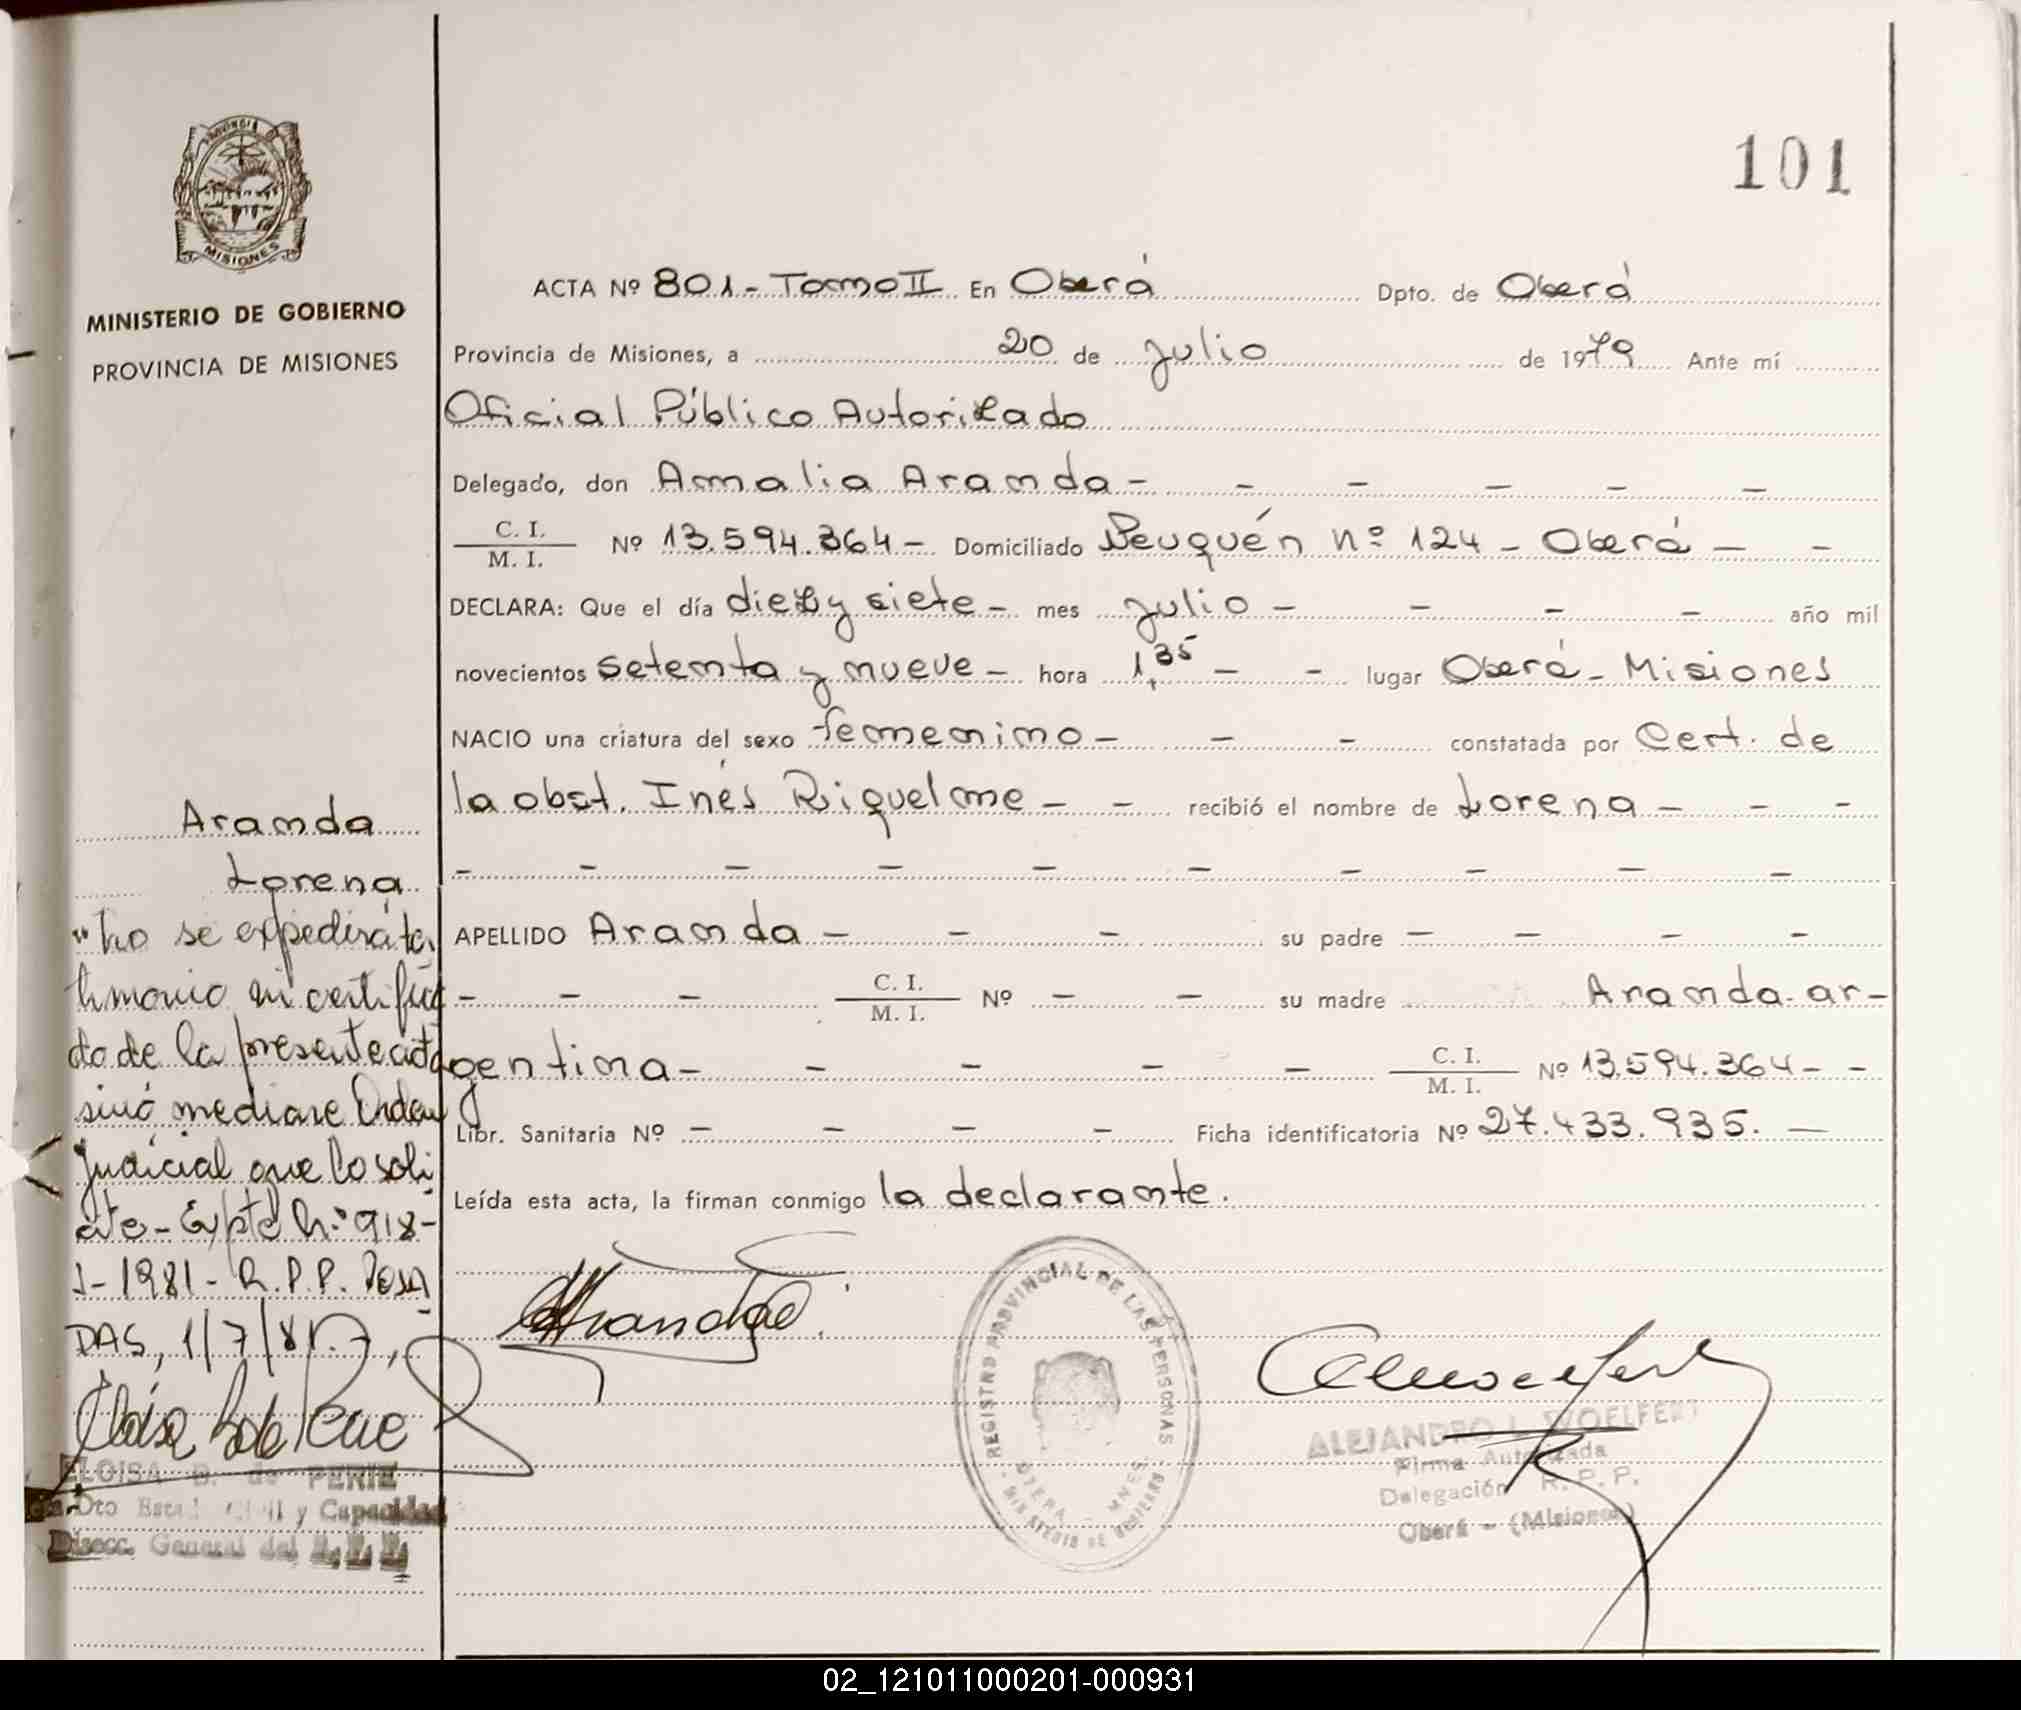 PROVINCIA DE
MISIONES
MINISTERIO DE GOBIERNO
PROVINCIA DE MISIONES
101
ACTA Nº 801 - Tomo II En Oberá Dpto. de Oberá
Provincia de Misiones, a 20 de julio de 1979 Ante mí
Oficial Público Autorizado
Delegado, don Amalia Aranda - - - - - -
C. I. / M. I. Nº 13.594.364 - Domiciliado Neuquén nº 124 - Oberá - -
DECLARA: Que el día diez y siete - mes julio - - - - año mil
novecientos setenta y nueve - hora 1,35 - - lugar Oberá - Misiones
NACIO una criatura del sexo femenino - - - constatada por Cert. de
la obst. Inés Riquelme - - recibió el nombre de Lorena - - -
- - - - - - - - - -
APELLIDO Aranda - - - su padre - - - -
- - - C. I. / M. I. Nº - - su madre Aranda - ar-
gentina - - - - - C. I. / M. I. Nº 13.594.364 - -
Libr. Sanitaria Nº - - - - Ficha identificatoria Nº 27.433.935. -
Leída esta acta, la firman conmigo la declarante.
Aranda
Lorena
"No se expedirá tes
timonio ni certifica
do de la presente acta
sinó mediare Orden
judicial que lo soli
cite - Expte Nº 918 -
1981 - R.P.P. POSA
DAS, 1/7/81.
ELOISA B. de PERIE
Dto Estado Civil y Capacidad
Direcc. General del R. P. P.
REGISTRO PROVINCIAL DE LAS PERSONAS
MINISTERIO DE GOBIERNO
ALEJANDRO L. WOELFERT
Firma Autorizada
Delegación R. P. P.
Oberá - (Misiones)
02_121011000201-000931